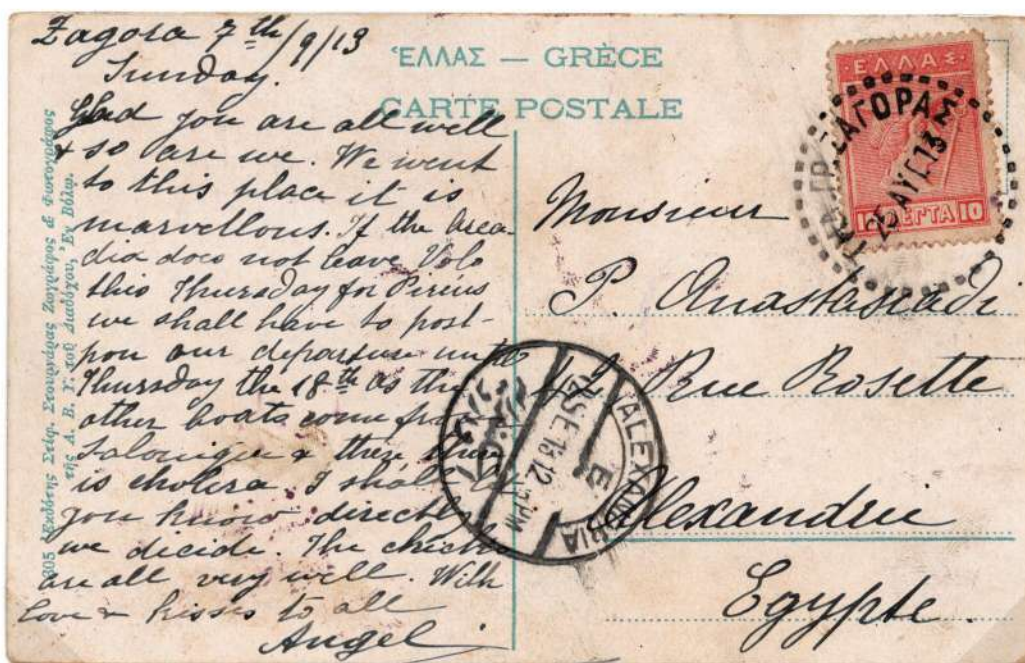 Zagora 7th/9/13
Sunday.
Glad you are all well
& so are we. We went
to this place it is
marvellous. If the Arca-
dia does not leave Volo
this Thursday for Pireus
we shall have to post-
pon our departure until
Thursday the 18th as the
other boats come from
Salonique & there there
is cholera. I shall let
you know directly
we decide. The chicks
are all very well. With
love & kisses to all
Angel
ἙΛΛΑΣ — GRÈCE
CARTE POSTALE
305 Ἐκδότης Στεφ. Στουρνάρας Ζωγράφος & Φωτογράφος
τῆς Α. Β. Υ. τοῦ Διαδόχου, Ἐν Βόλῳ.
ΕΛΛΑΣ
10 ΛΕΠΤΑ 10
ΖΑΓΟΡΑΣ
25 ΑΥΓ. 13
Monsieur
P. Anastasiadi
Rue Rosette
Alexandrie
Egypte.
ALEXANDRIA
E
12 SE 13 12
PM